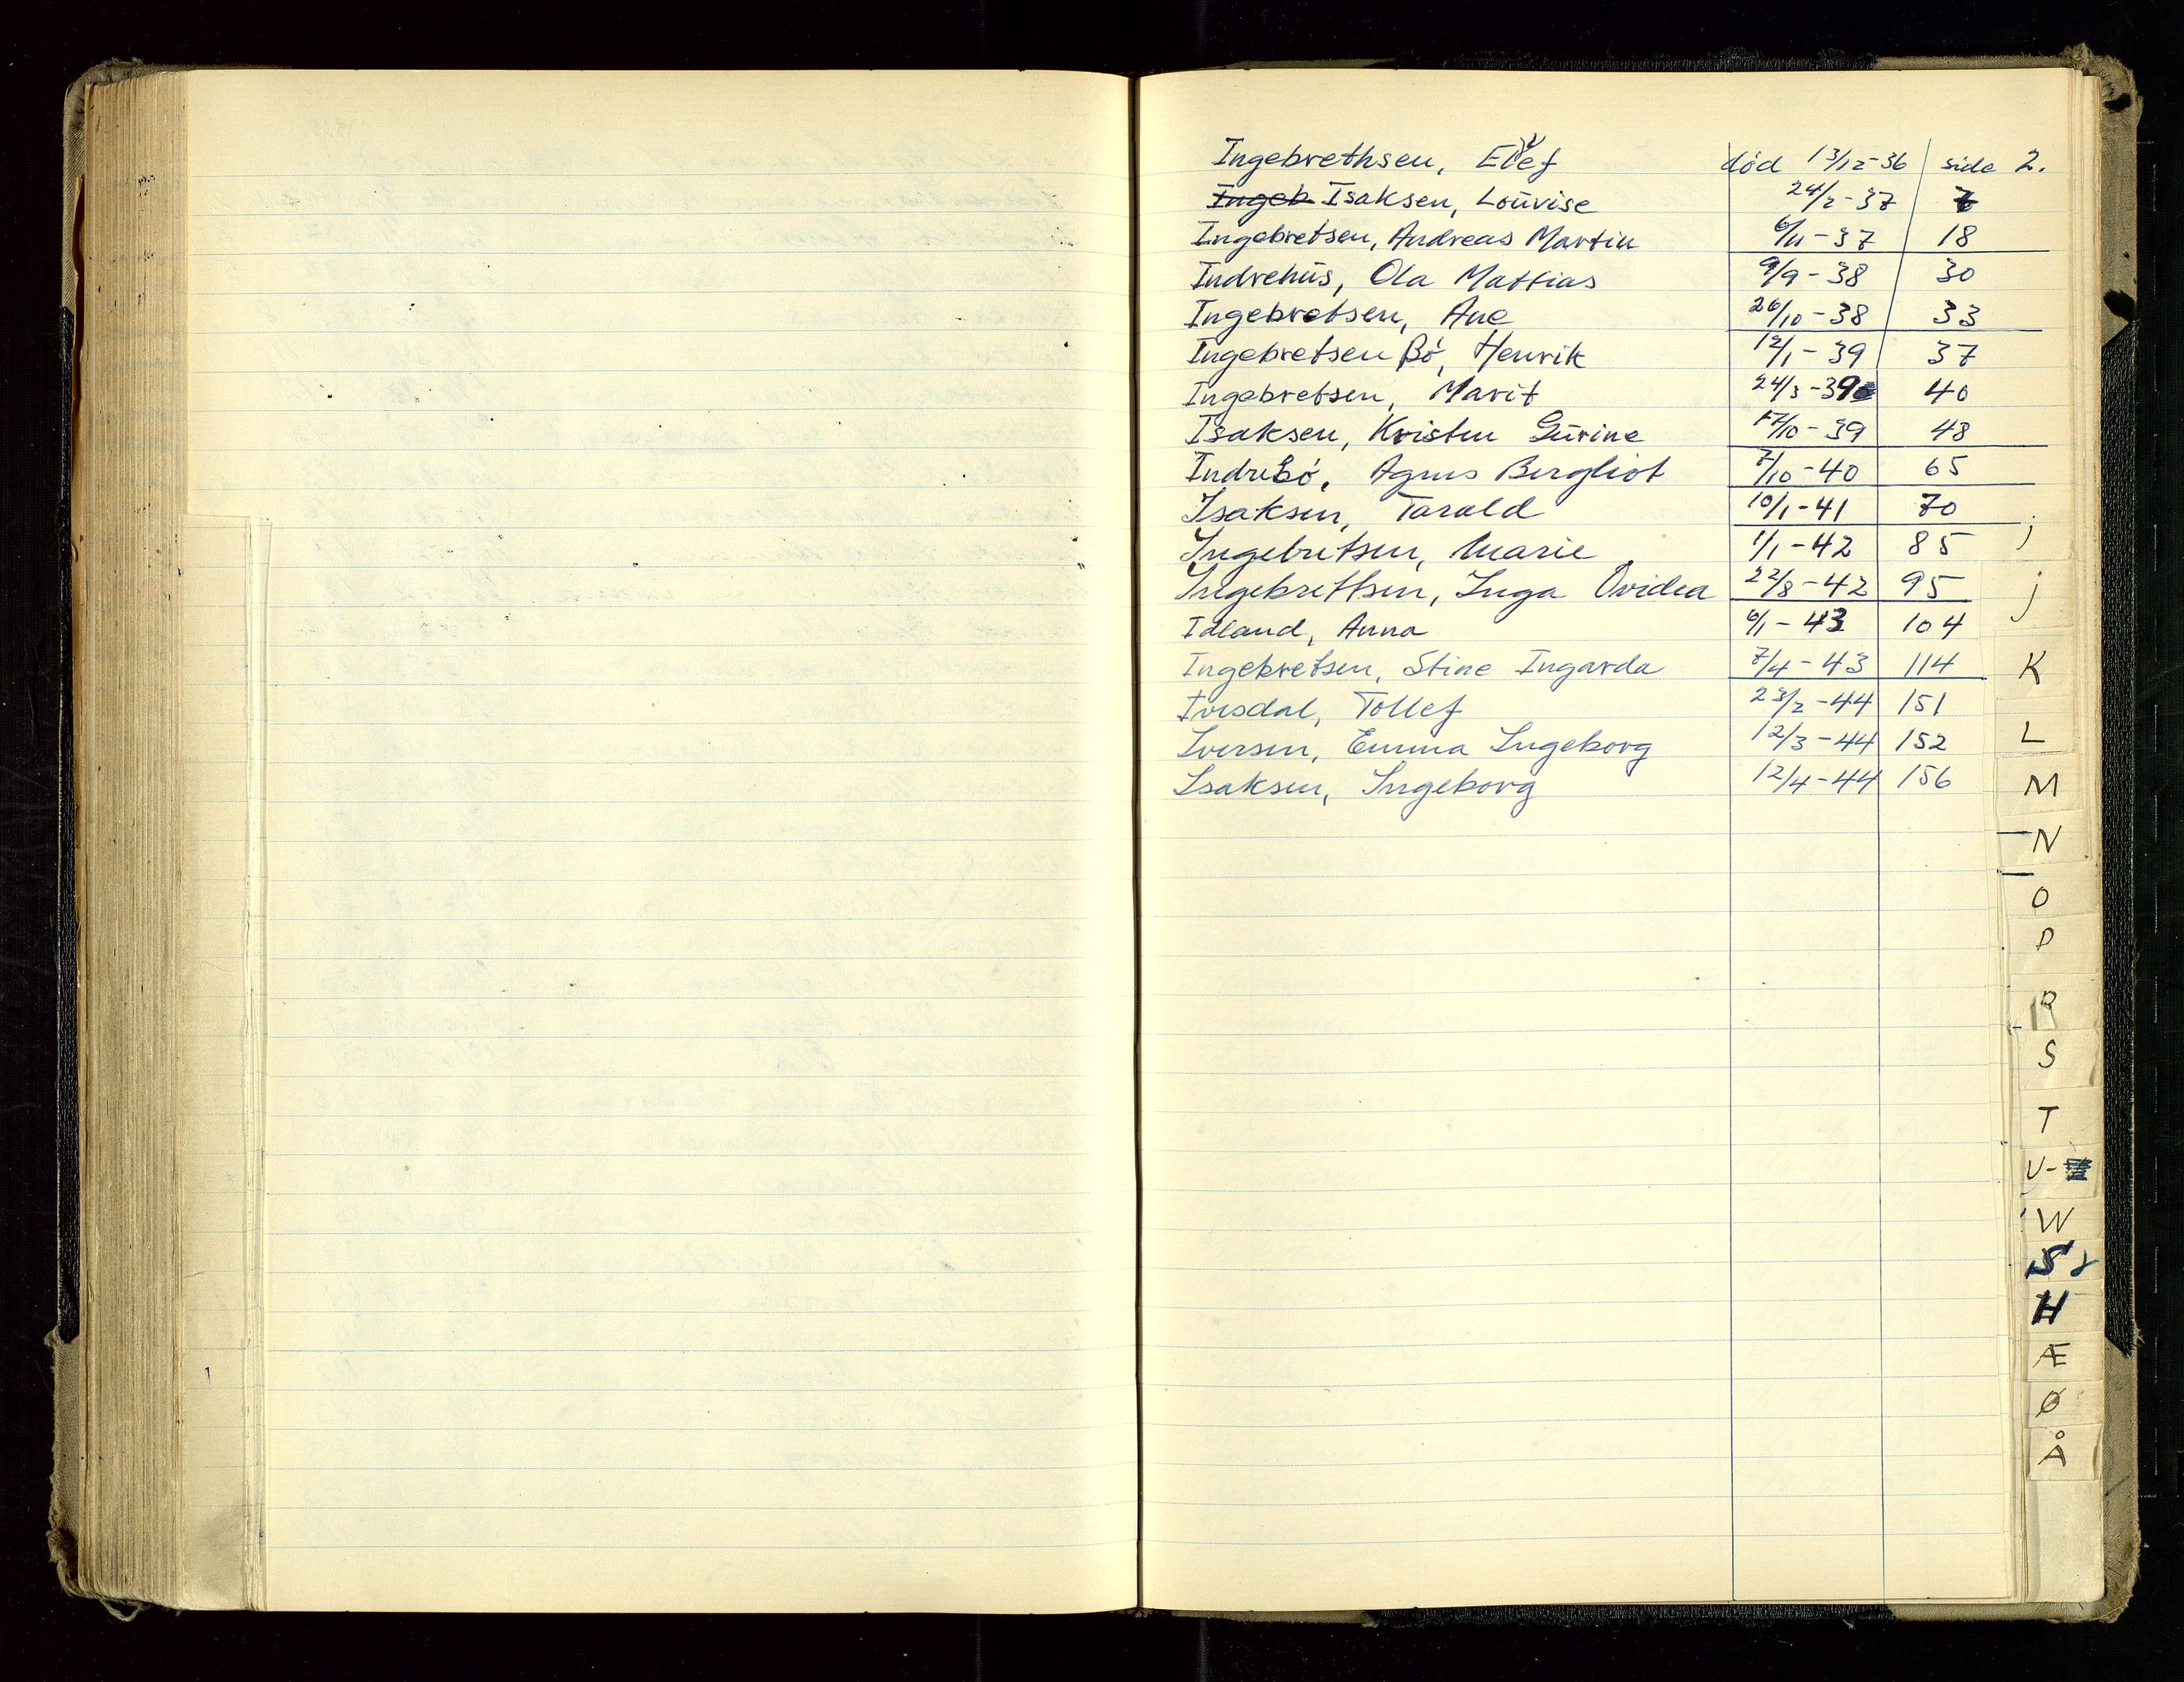 Ingebrethsen, Elef død 13/12-36 side 2.
Ingeb Isaksen, Louvise 24/2-37 7
Ingebretsen, Andreas Martin 6/11-37 18
Indrehus, Ola Mattias 9/9-38 30
Ingebretsen, Ane 26/10-38 33
Ingebretsen Bø, Henrik 12/1-39 37
Ingebretsen, Marit 24/3-39 40
Isaksen, Kristen Gurine 17/10-39 48
Indrebø, Agnes Bergliot 7/10-40 65
Isaksen, Tarald 10/1-41 70
Ingebretsen, Marie 1/1-42 85
Ingebrettsen, Inga Ovidea 22/8-42 95
Idland, Anna 6/1-43 104
Ingebretsen, Stine Ingarda 7/4-43 114
Ivesdal, Tollef 23/2-44 151
Iversen, Emma Ingeborg 12/3-44 152
Isaksen, Ingeborg 12/4-44 156
i
j
K
L
M
N
O
P
R
S
T
U-
W
H
Æ
Ø
Å